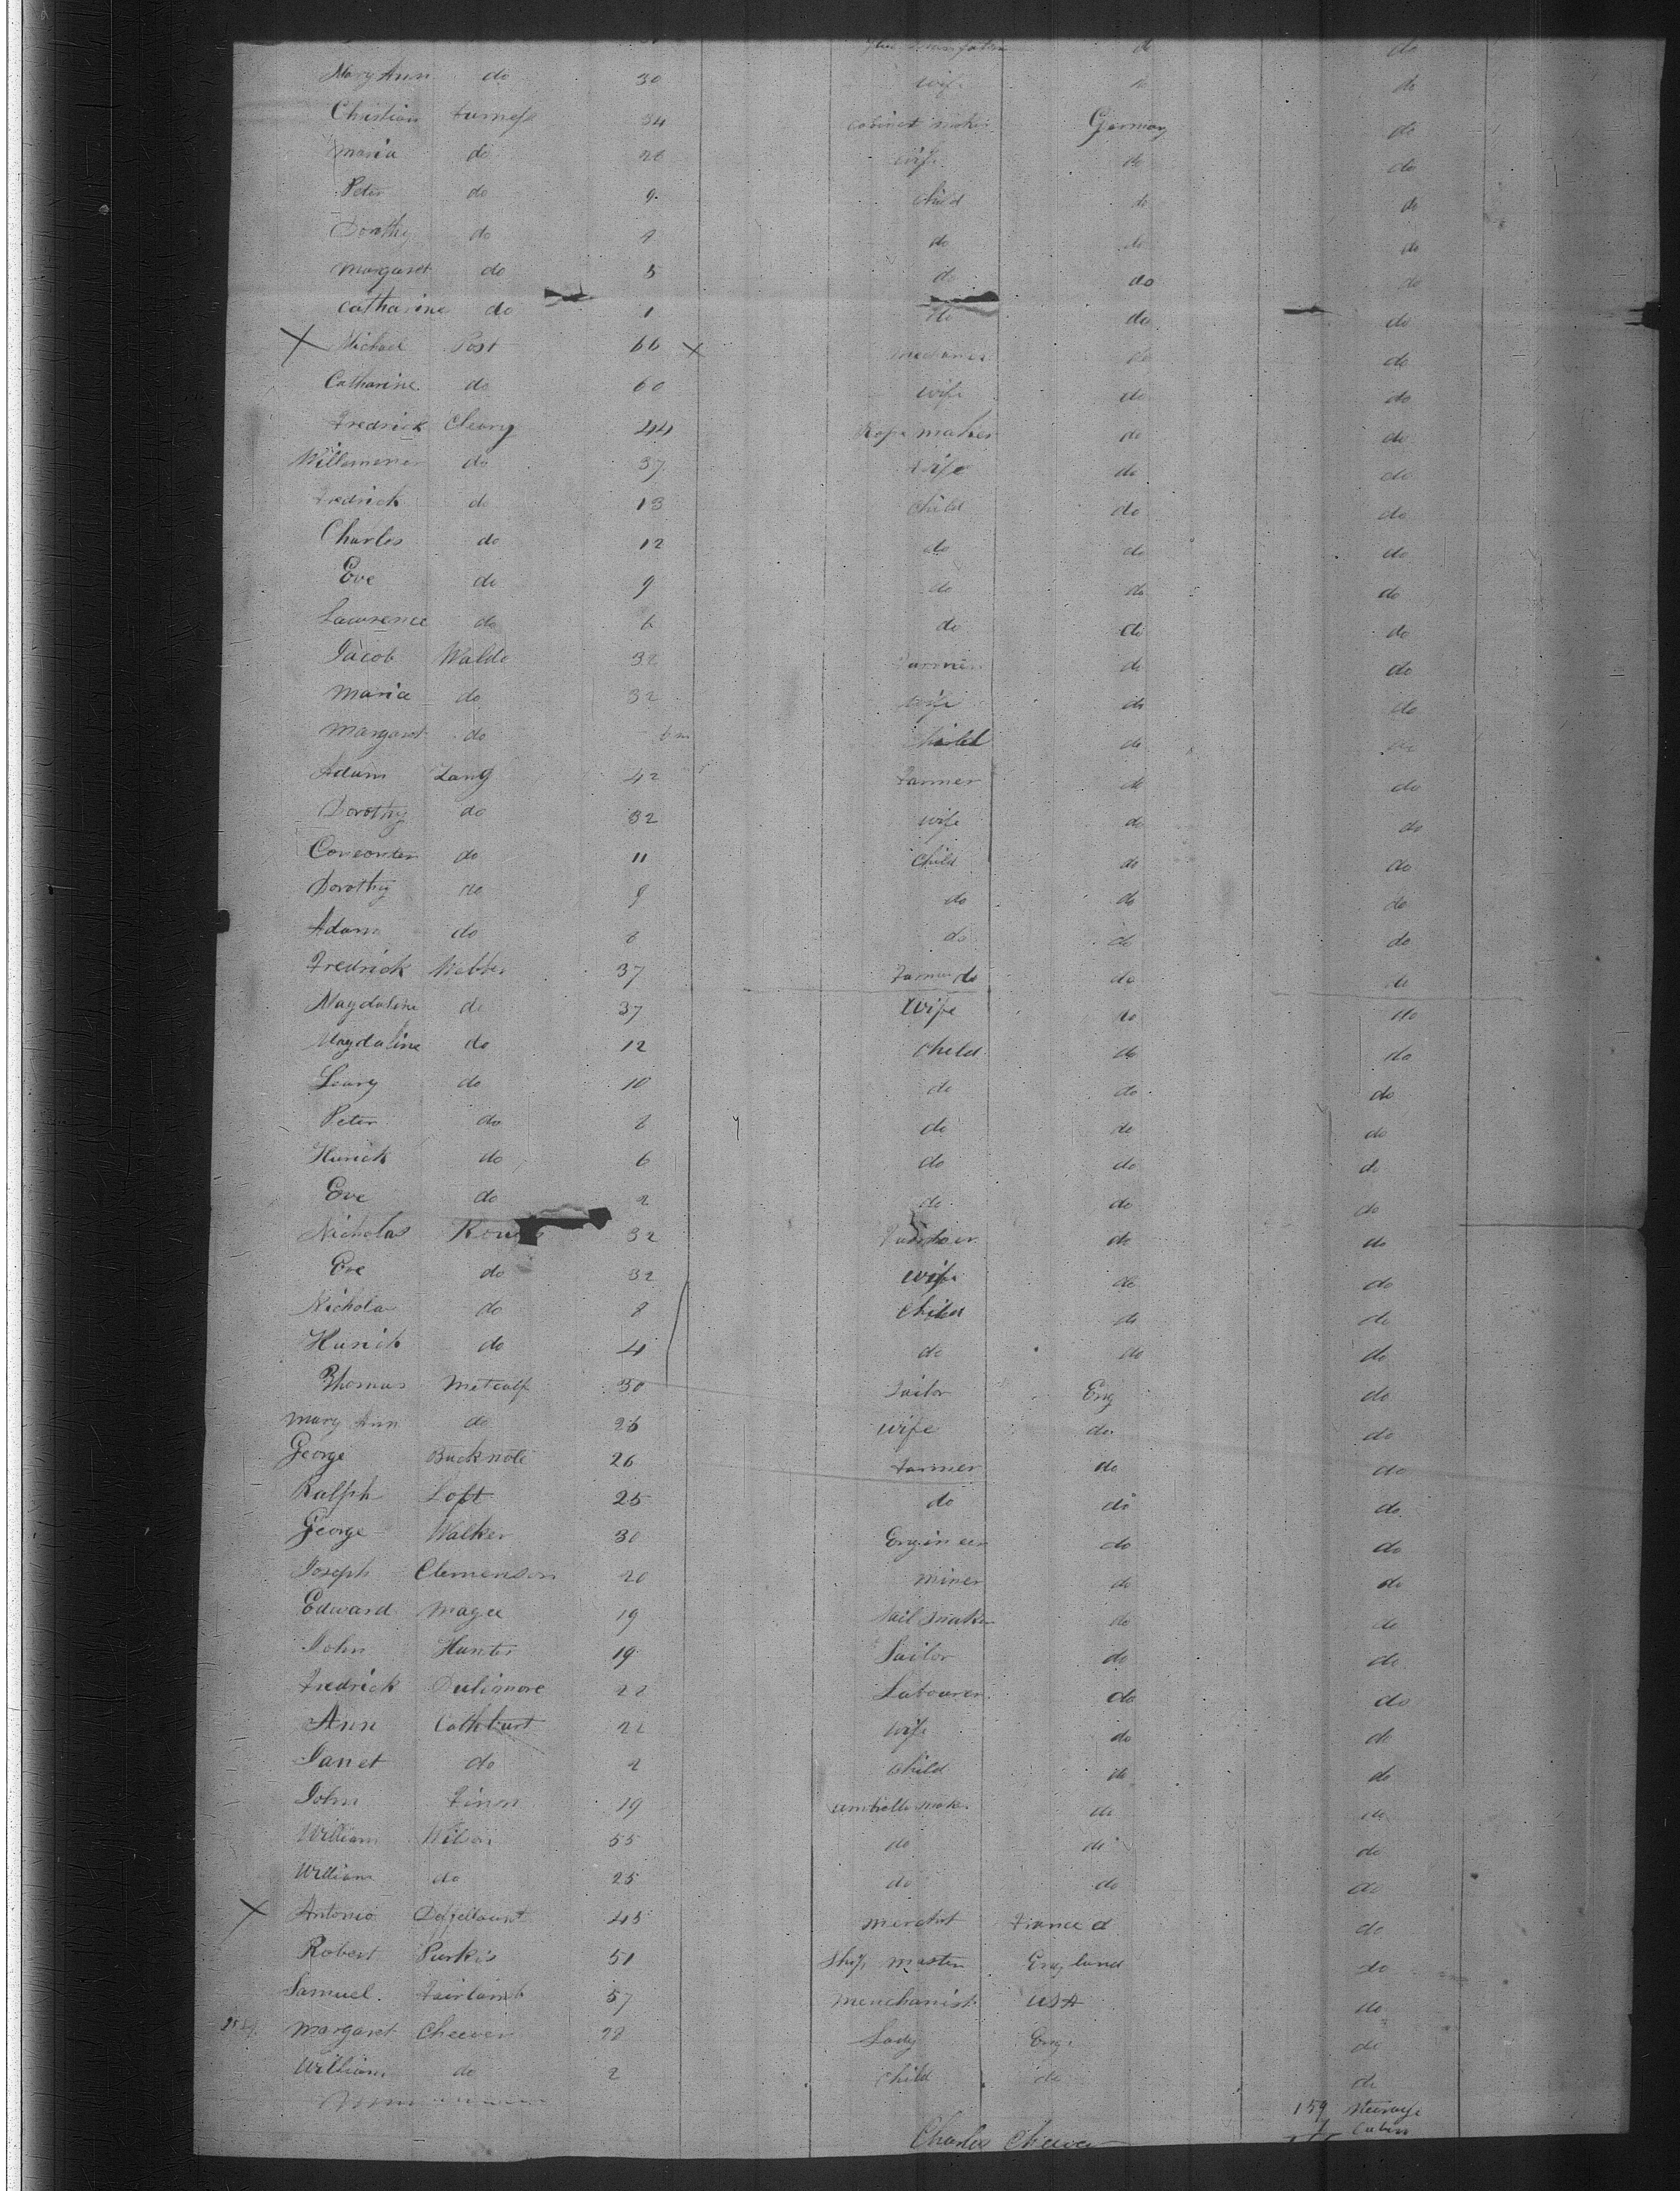 do do
Mary Ann do 30 wife do do
Christian 34 cabinet maker Germany do
Maria do 26 wife do do
Peter do 9 child do do
Dorothy do 7 do do do
Margaret do 5 do do do
Catharine do 1 do do do
X Michael Post 66 X do do
Catharine do 60 wife do do
Fredrick Cleary 44 Rope maker do do
do 37 wife do do
Fredrick do 13 child do do
Charles do 12 do do do
Eve do 9 do do do
Lawrence do 6 do do do
Jacob Waldo 32 Farmer do do
Maria do 32 wife do do
Margaret do 6 m child do do
Adam Zang 42 Farmer do do
Dorothy do 32 wife do do
do 11 child do do
Dorothy do 9 do do do
Adam do 8 do do do
Fredrick Webber 37 Farmer do do do
Magdaline do 37 wife do do
Magdaline do 12 child do do
Leary do 10 do do do
Peter do 8 do do do
Hurick do 6 do do do
Eve do 2 do do do
Nicholas 32 do do
Eve do 32 wife do do
Nicholas do 8 child do do
Hurick do 4 do do do
Thomas Metcalf 30 Tailor Eng do
Mary Ann do 26 wife do do
George Bucknole 26 Farmer do do
Ralph Loft 25 do do do
George Walker 30 Engineer do do
Joseph Clemenson 20 miner do do
Edward Magee 19 Sail maker do do
John Hunter 19 Sailor do do
Fredrick Dulimore 22 Labourer do do
Ann Cathburt 22 wife do do
Janet do 2 child do do
John Finon 19 umbrella maker do do
William Wilson 55 do do do
William do 25 do do do
X Antonio 45 mercht France do
Robert Purkis 51 Ship master England do
Samuel Fairlamb 57 Menchanist USA do
Margaret Cheever 28 Lady Eng. do
William do 2 child do do
159 Steerage
7 Cabin
Charles Cheever